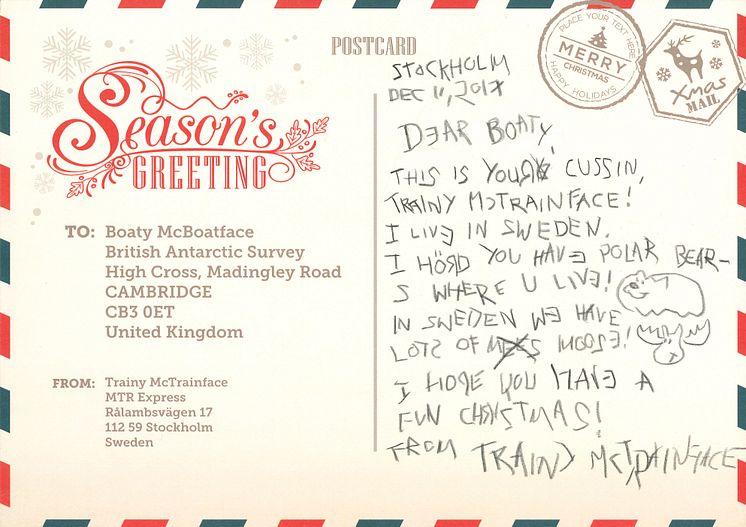 POSTCARD
PLACE YOUR TEXT HERE
MERRY
CHRISTMAS
HAPPY HOLIDAYS
Xmas
MAIL
Season's
GREETING
TO: Boaty McBoatface
British Antarctic Survey
High Cross, Madingley Road
CAMBRIDGE
CB3 0ET
United Kingdom
FROM: Trainy McTrainface
MTR Express
Rålambsvägen 17
112 59 Stockholm
Sweden
STOCKHOLM
DEC 11, 2017
DEAR BOATY,
THIS IS YOUR CUSSIN,
TRAINY MCTRAINFACE!
I LIVE IN SWEDEN.
I HÖRD YOU HAVE POLAR BEAR-
S WHERE U LIVE!
IN SWEDEN WE HAVE
LOTS OF MOOSE!
I HOPE YOU HAVE A
FUN CHRISTMAS!
FROM TRAINY MCTRAINFACE